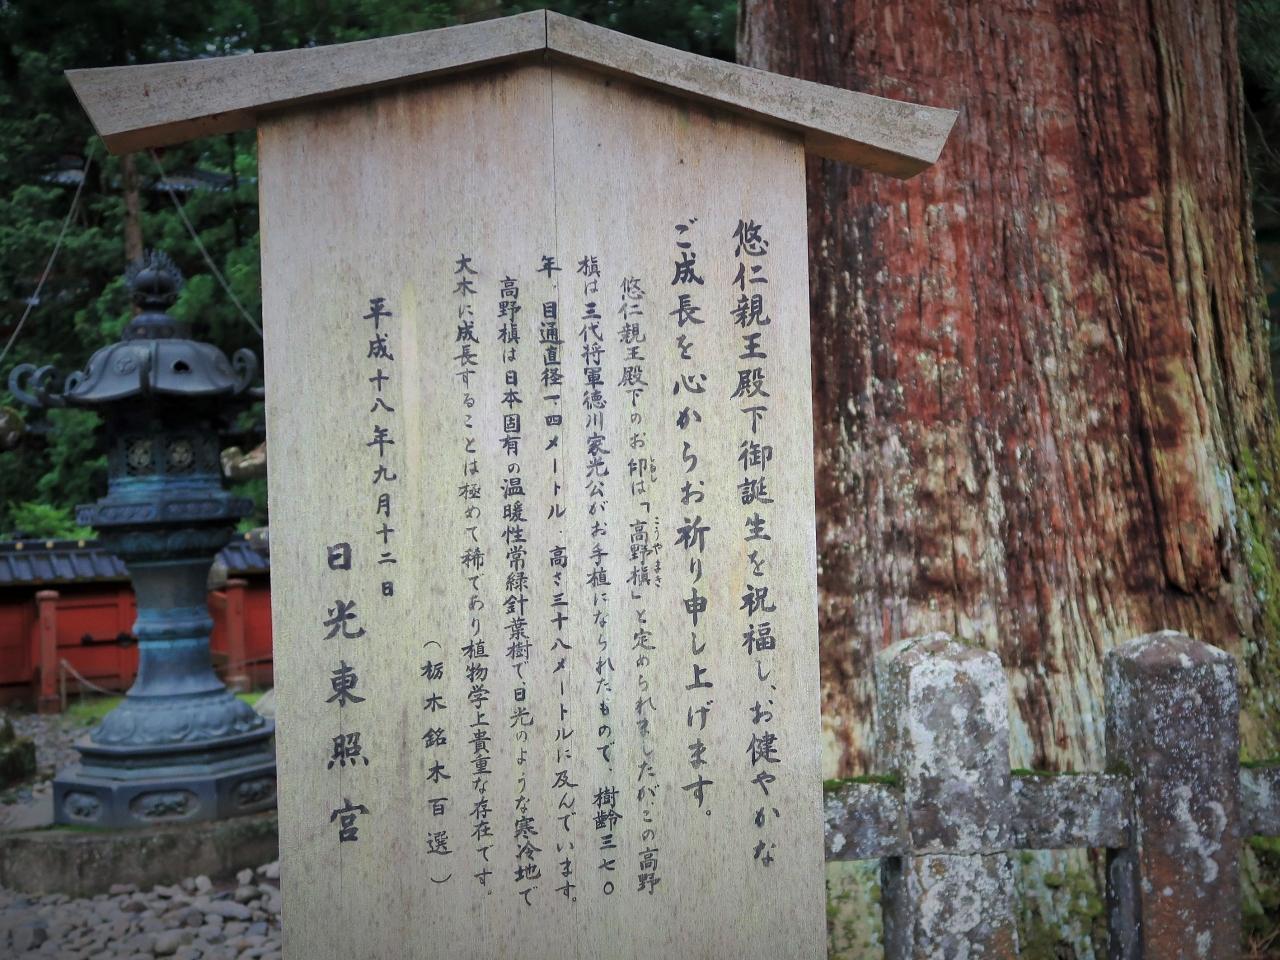 悠仁親王殿下御誕生を祝福し、お健やかな
ご成長を心からお祈り申し上げます。
悠仁親王殿下のお印は「高野槇」と定められましたが、この高野
しるし
こうやまき
槇は三代将軍徳川家光公がお手植になられたもので、樹齢三七〇
年、目通直径一四メートル、高さ三十八メートルに及んでいます。
高野槇は日本固有の温暖性常緑針葉樹で、日光のような寒冷地で
大木に成長することは極めて稀であり植物学上貴重な存在です。
（栃木銘木百選）
平成十八年九月十二日
日光東照宮